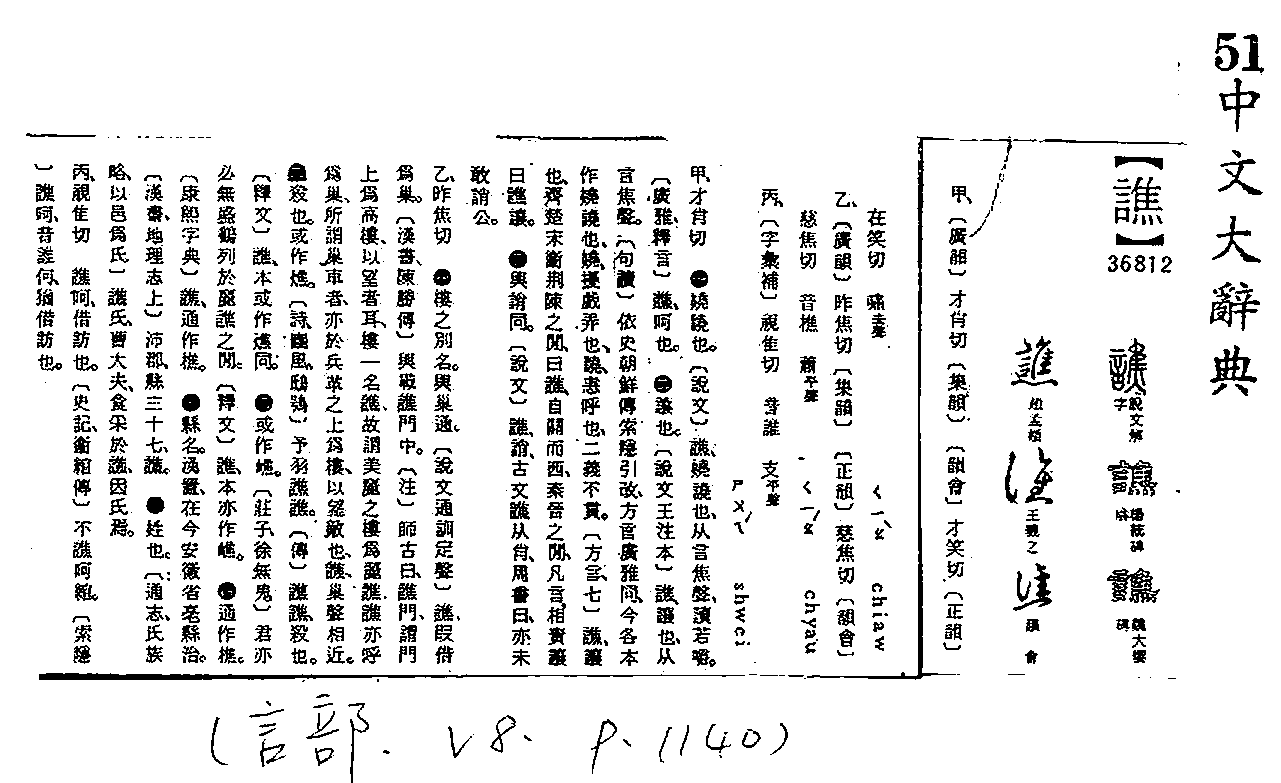 51中文大辭典
【譙】
36812
說文解字
楊
魏大
碑
趙孟頫
王羲之
韻會
甲、〔廣韻〕才肖切〔集韻〕〔韻會〕才笑切〔正韻〕
在笑切 嘯去聲 ㄑㄧㄠˋ chiaw
乙、〔廣韻〕昨焦切〔集韻〕〔正韻〕慈焦切〔韻會〕
慈焦切 音樵 蕭平聲 ㄑㄧㄠˊ chyau
丙、〔字彙補〕視隹切 音誰 支平聲 ㄕㄨㄟˊ shwei
甲、才肖切 ㊀嬈譊也。〔說文〕譙、嬈譊也、从言焦聲、讀若嚼。
〔廣雅、釋言〕譙、呵也。㊁讓也。〔說文王注本〕譙、讓也、从
言焦聲。〔句讀〕依史朝鮮傳索隱引改、方言廣雅同、今各本
作嬈譊也、嬈、擾戲弄也、譊、恚呼也、二義不貫。〔方言、七〕譙、讓
也、齊楚宋衞荊陳之閒曰譙、自關而西秦晉之閒、凡言相責讓
曰譙讓。㊂與誚同。〔說文〕譙、誚、古文譙从肖、周書曰、亦未
敢誚公。
乙、昨焦切 ㊀樓之別名。與巢通。〔說文通訓定聲〕譙、叚借
爲巢。〔漢書、陳勝傳〕與戰譙門中。〔注〕師古曰、譙門、謂門
上爲高樓、以望者耳、樓一名譙、故謂美麗之樓爲麗譙、譙亦呼
爲巢、所謂巢車者、亦於兵車之上爲樓、以望敵也、譙巢聲相近。
㊁殺也。或作燋。〔詩、豳風、鴟鴞〕予羽譙譙。〔傳〕譙譙、殺也。
〔釋文〕譙、本或作燋同。㊂或作嶕。〔莊子、徐無鬼〕君亦
必無盛鶴列於麗譙之閒。〔釋文〕譙、本亦作嶕。㊃通作樵。
〔康熙字典〕譙、通作樵。㊄縣名。漢置、在今安徽省亳縣治。
〔漢書、地理志上〕沛郡、縣三十七、譙。㊅姓也。〔通志、氏族
略、以邑爲氏〕譙氏、曹大夫、食采於譙、因氏焉。
丙、視隹切 譙呵、借訪也。〔史記、衞綰傳〕不譙呵綰。〔索隱
〕譙呵、音誰何、猶借訪也。
(言部. v8. p.1140)